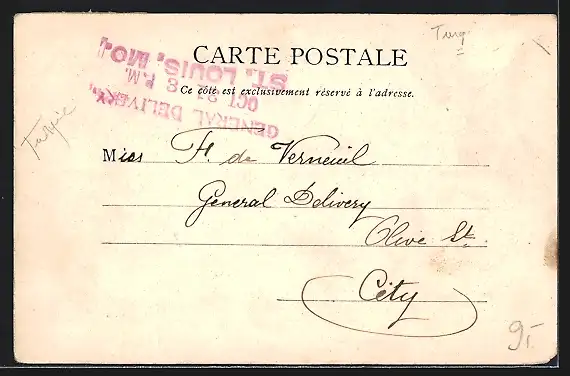 Turq
CARTE POSTALE
ST. LOUIS, MO.
OCT 21 8 P.M.
GENERAL DELIVERY,
Ce côté est exclusivement réservé à l'adresse.
Miss F. de Verneuil
General Delivery
Olive St.
City
9,-